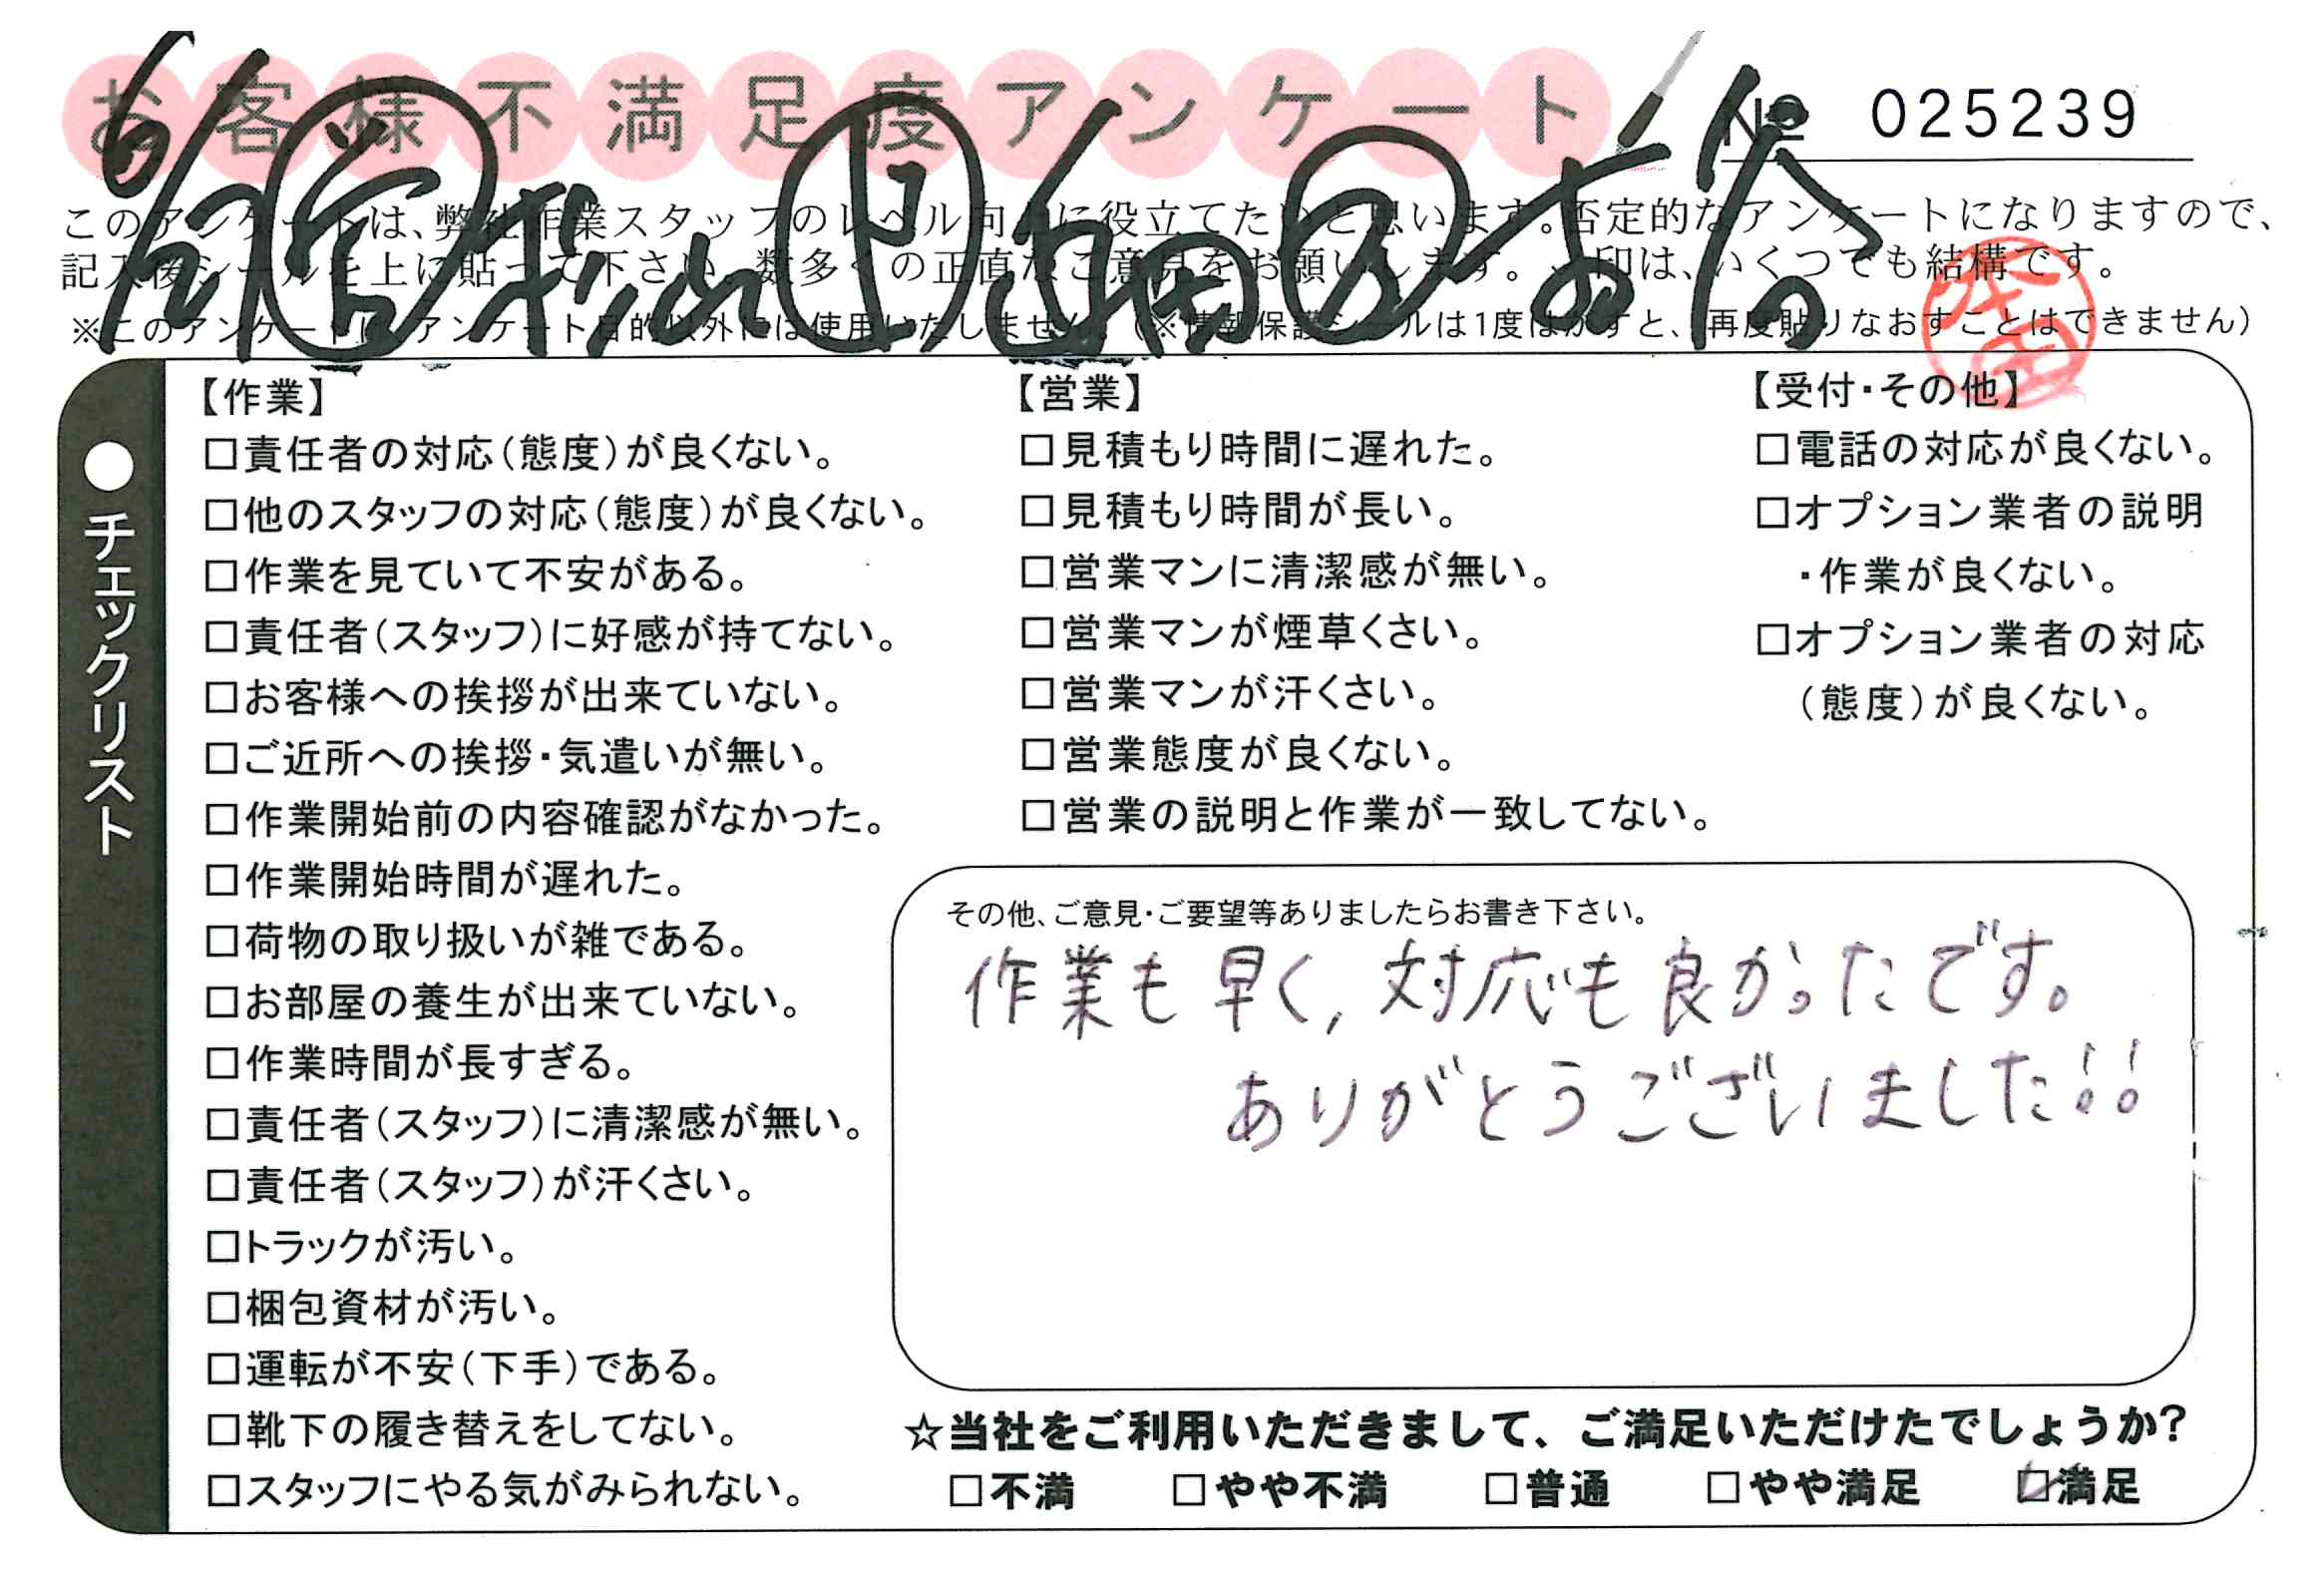 お客様不満足度アンケート
№ 025239
このアンケートは、弊社作業スタッフのレベル向上に役立てたいと思います。否定的なアンケートになりますので、
記入後シールを上に貼って下さい。数多くの正直なご意見をお願いします。、印は、いくつでも結構です。
※このアンケートは、アンケート目的以外には使用いたしません。(※情報保護シールは1度はがすと、再度貼りなおすことはできません)
●チェックリスト
【作業】
□責任者の対応(態度)が良くない。
□他のスタッフの対応(態度)が良くない。
□作業を見ていて不安がある。
□責任者(スタッフ)に好感が持てない。
□お客様への挨拶が出来ていない。
□ご近所への挨拶・気遣いが無い。
□作業開始前の内容確認がなかった。
□作業開始時間が遅れた。
□荷物の取り扱いが雑である。
□お部屋の養生が出来ていない。
□作業時間が長すぎる。
□責任者(スタッフ)に清潔感が無い。
□責任者(スタッフ)が汗くさい。
□トラックが汚い。
□梱包資材が汚い。
□運転が不安(下手)である。
□靴下の履き替えをしてない。
□スタッフにやる気がみられない。
【営業】
□見積もり時間に遅れた。
□見積もり時間が長い。
□営業マンに清潔感が無い。
□営業マンが煙草くさい。
□営業マンが汗くさい。
□営業態度が良くない。
□営業の説明と作業が一致してない。
【受付・その他】
□電話の対応が良くない。
□オプション業者の説明
・作業が良くない。
□オプション業者の対応
(態度)が良くない。
その他、ご意見・ご要望等ありましたらお書き下さい。
作業も早く,対応も良かったです。
ありがとうございました!!
☆当社をご利用いただきまして、ご満足いただけたでしょうか?
□不満 □やや不満 □普通 □やや満足 ☑満足